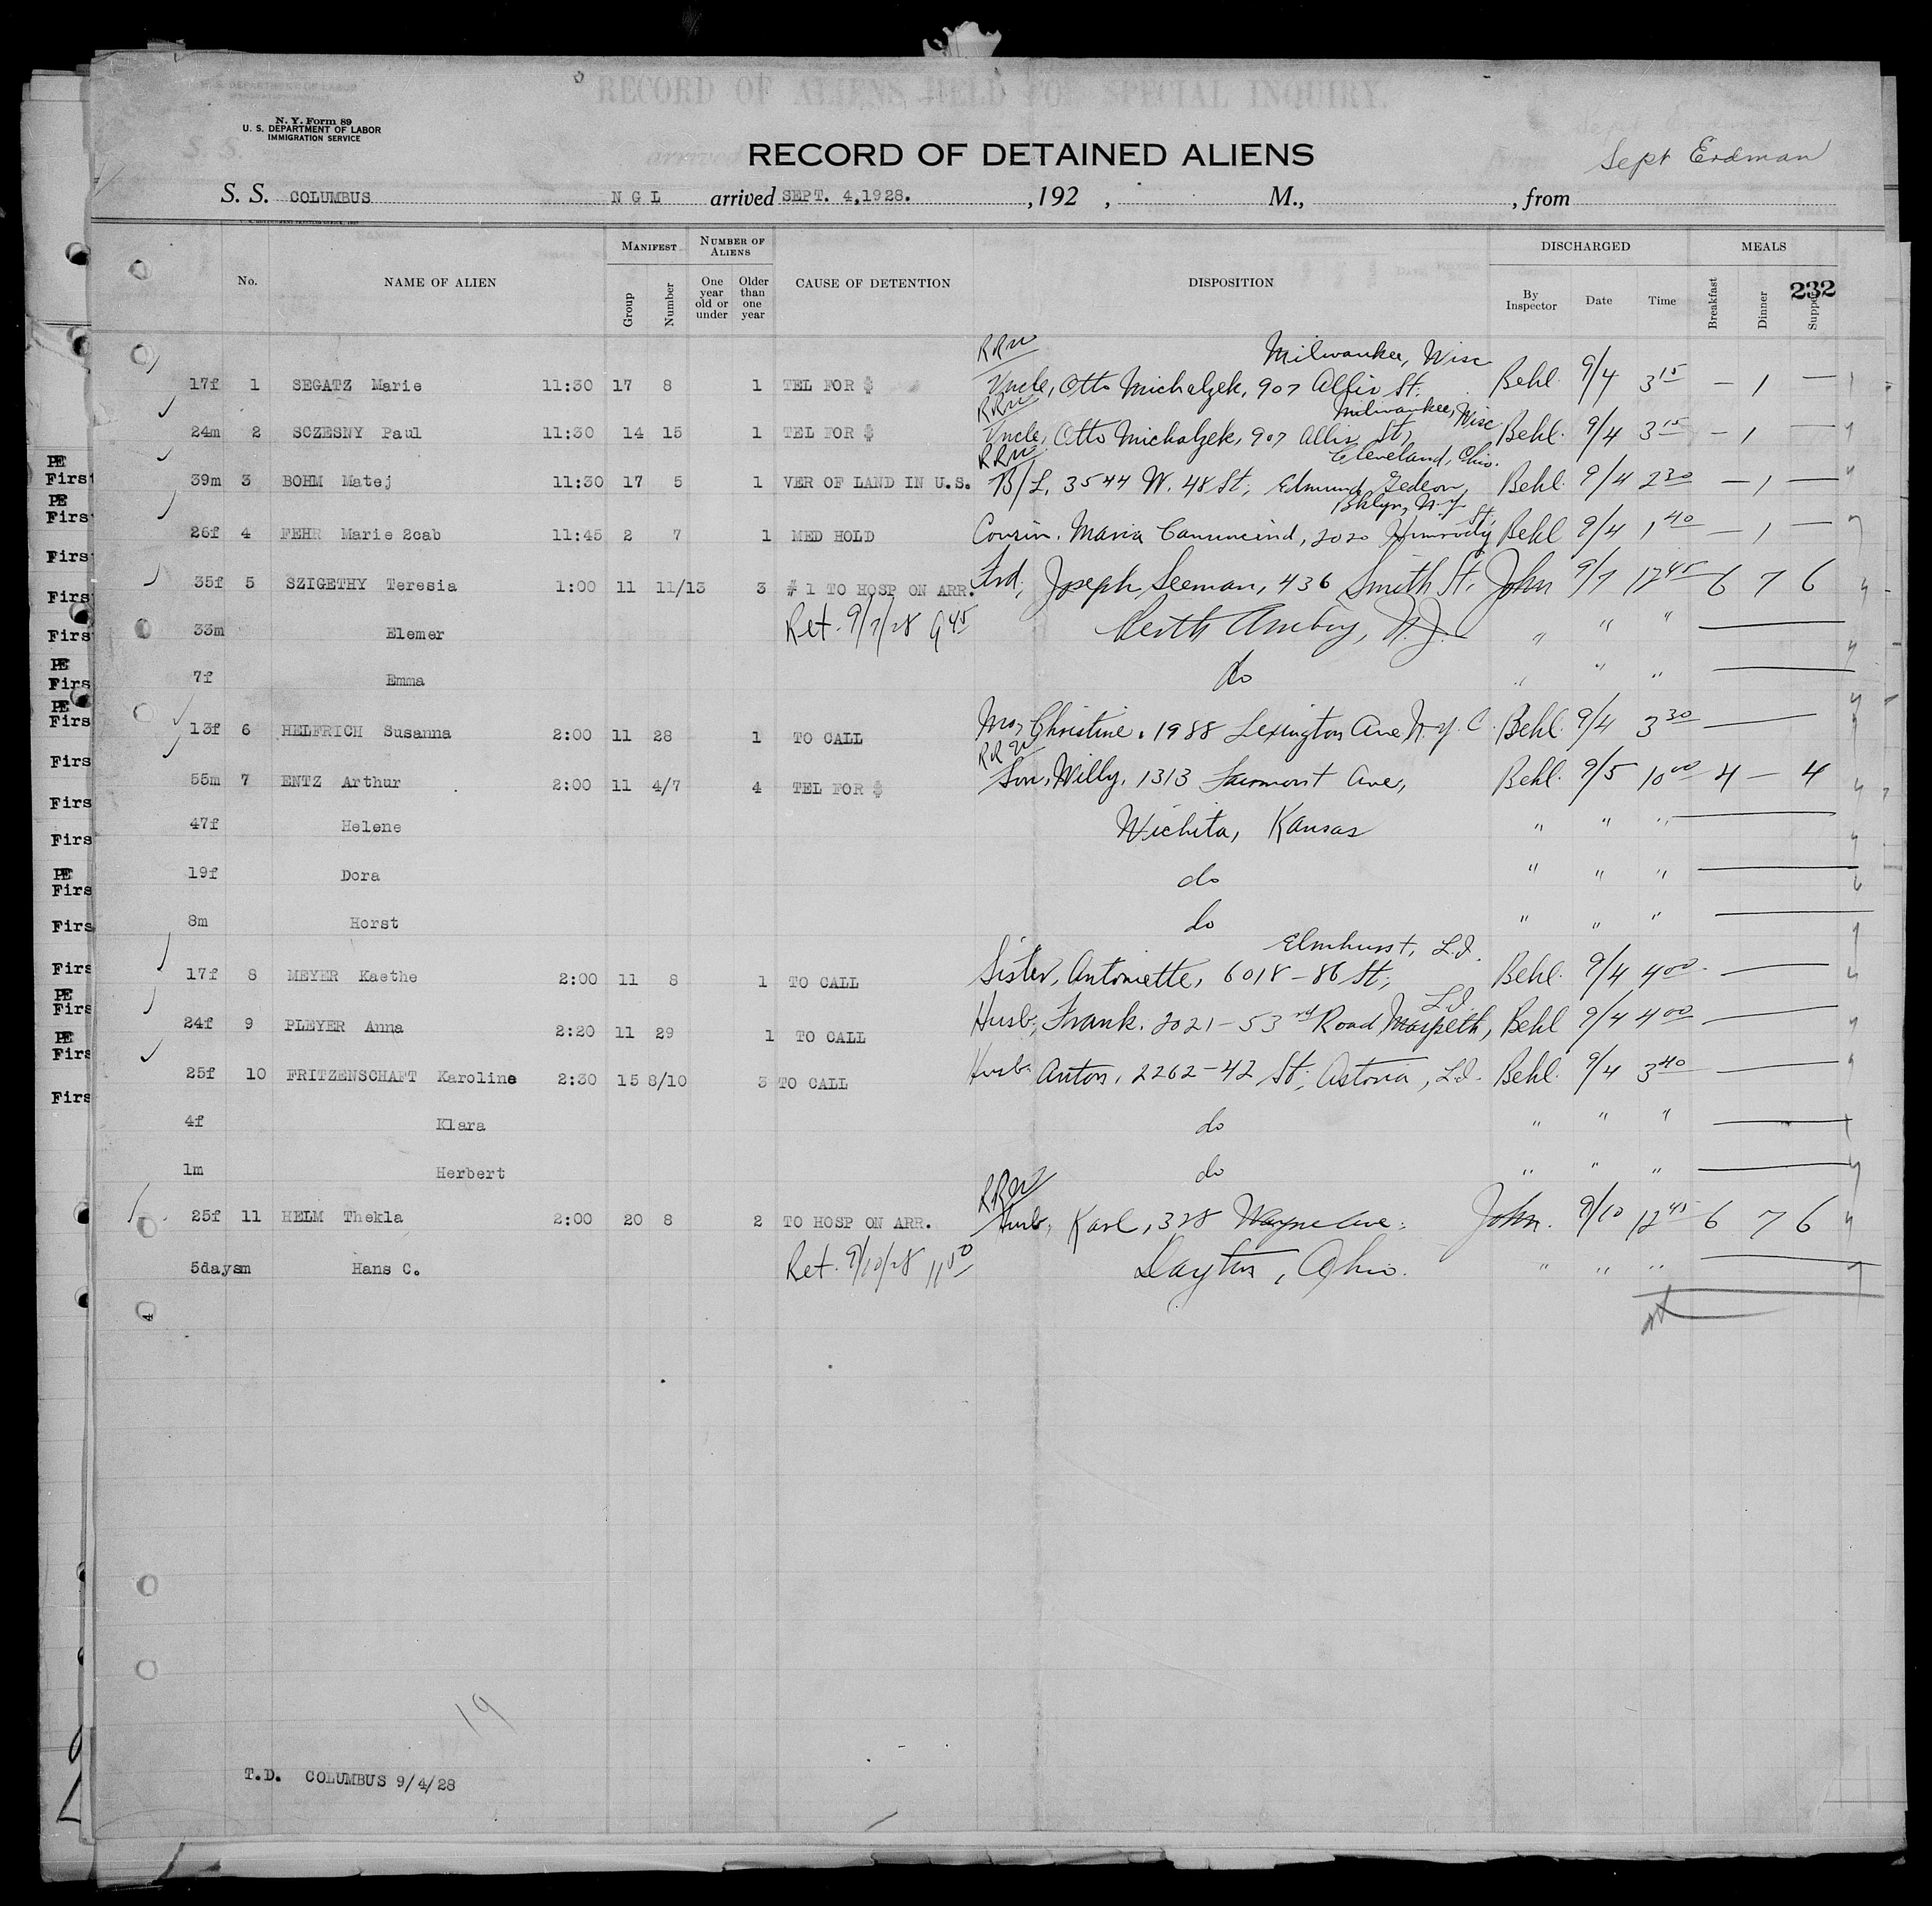 RECORD OF ALIENS HELD FOR SPECIAL INQUIRY.
N. Y. Form 89
U. S. DEPARTMENT OF LABOR
IMMIGRATION SERVICE
RECORD OF DETAINED ALIENS
Sept Erdman
S. S. COLUMBUS N G L arrived SEPT. 4,1928. , 192 , M., , from
No. NAME OF ALIEN MANIFEST Group Number NUMBER OF ALIENS One year old or under Older than one year CAUSE OF DETENTION DISPOSITION DISCHARGED By Inspector Date Time MEALS Breakfast Dinner Supper
232
Milwaukee, Wisc
17f 1 SEGATZ Marie 11:30 17 8 1 TEL FOR $ Uncle, Otto Michalzek, 907 Allis St. Behl. 9/4 3 15 — 1 —
Milwaukee, Wisc
24m 2 SCZESNY Paul 11:30 14 15 1 TEL FOR $ Uncle, Otto Michalzek, 907 Allis St, Behl. 9/4 3 15 — 1 —
Cleveland, Ohio.
39m 3 BOHM Matej 11:30 17 5 1 VER OF LAND IN U.S. B/L. 3544 W. 48 St, Edmund Gedeon, Behl. 9/4 2 30 — 1 —
Bklyn, N.Y
26f 4 FEHR Marie 2cab 11:45 2 7 1 MED HOLD Cousin. Maria 2020 St Behl 9/4 1 40 — 1 —
35f 5 SZIGETHY Teresia 1:00 11 11/13 3 # 1 TO HOSP ON ARR. Frd, Joseph Seeman, 436 Smith St. John 9/7 12 45 6 7 6
33m Elemer Ret. 9/7/28 9 45 Perth Amboy, N.J. " " "
7f Emma do " " "
13f 6 HELFRICH Susanna 2:00 11 28 1 TO CALL Mo, Christine. 1988 Lexington Ave N.Y.C. Behl. 9/4 3 30 —
55m 7 ENTZ Arthur 2:00 11 4/7 4 TEL FOR $ Son, Willy. 1313 Fairmont Ave, Behl. 9/5 10 00 4 — 4
47f Helene Wichita, Kansas " " "
19f Dora do " " "
8m Horst do " " "
Elmhurst, L.I.
17f 8 MEYER Kaethe 2:00 11 8 1 TO CALL Sister, Antoniette, 6018-86 St, Behl. 9/4 4 00 —
L.I
24f 9 PLEYER Anna 2:20 11 29 1 TO CALL Husb, Frank. 2021-53rd Road Maspeth, Behl 9/4 4 00 —
25f 10 FRITZENSCHAFT Karoline 2:30 15 8/10 3 TO CALL Husb. Anton, 2262-42 St, Astoria, L.I. Behl. 9/4 3 40 —
4f Klara do " " "
1m Herbert do " " "
25f 11 HELM Thekla 2:00 20 8 2 TO HOSP ON ARR. Husb, Karl, 328 Wayne Ave. John. 9/10 12 45 6 7 6
5daysm Hans C. Ret. 9/10/28 11 50 Dayton, Ohio. " " "
19
T.D. COLUMBUS 9/4/28